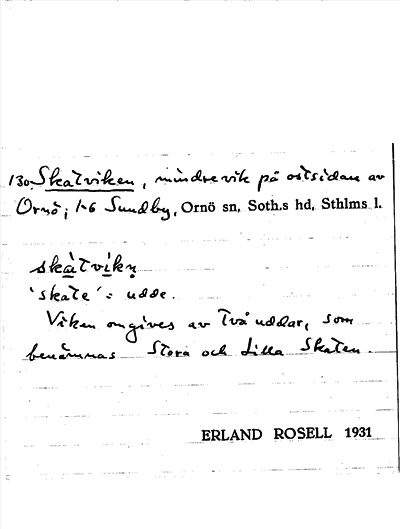 130. Skatviken, mindre vik på ostsidan av
Ornö; 1-6 Sundby, Ornö sn, Soth.s hd, Sthlms l.
skàtvìkn̥
'skate' = udde.
Viken omgives av två uddar, som
benämnas Stora och Lilla Skaten.
ERLAND ROSELL 1931